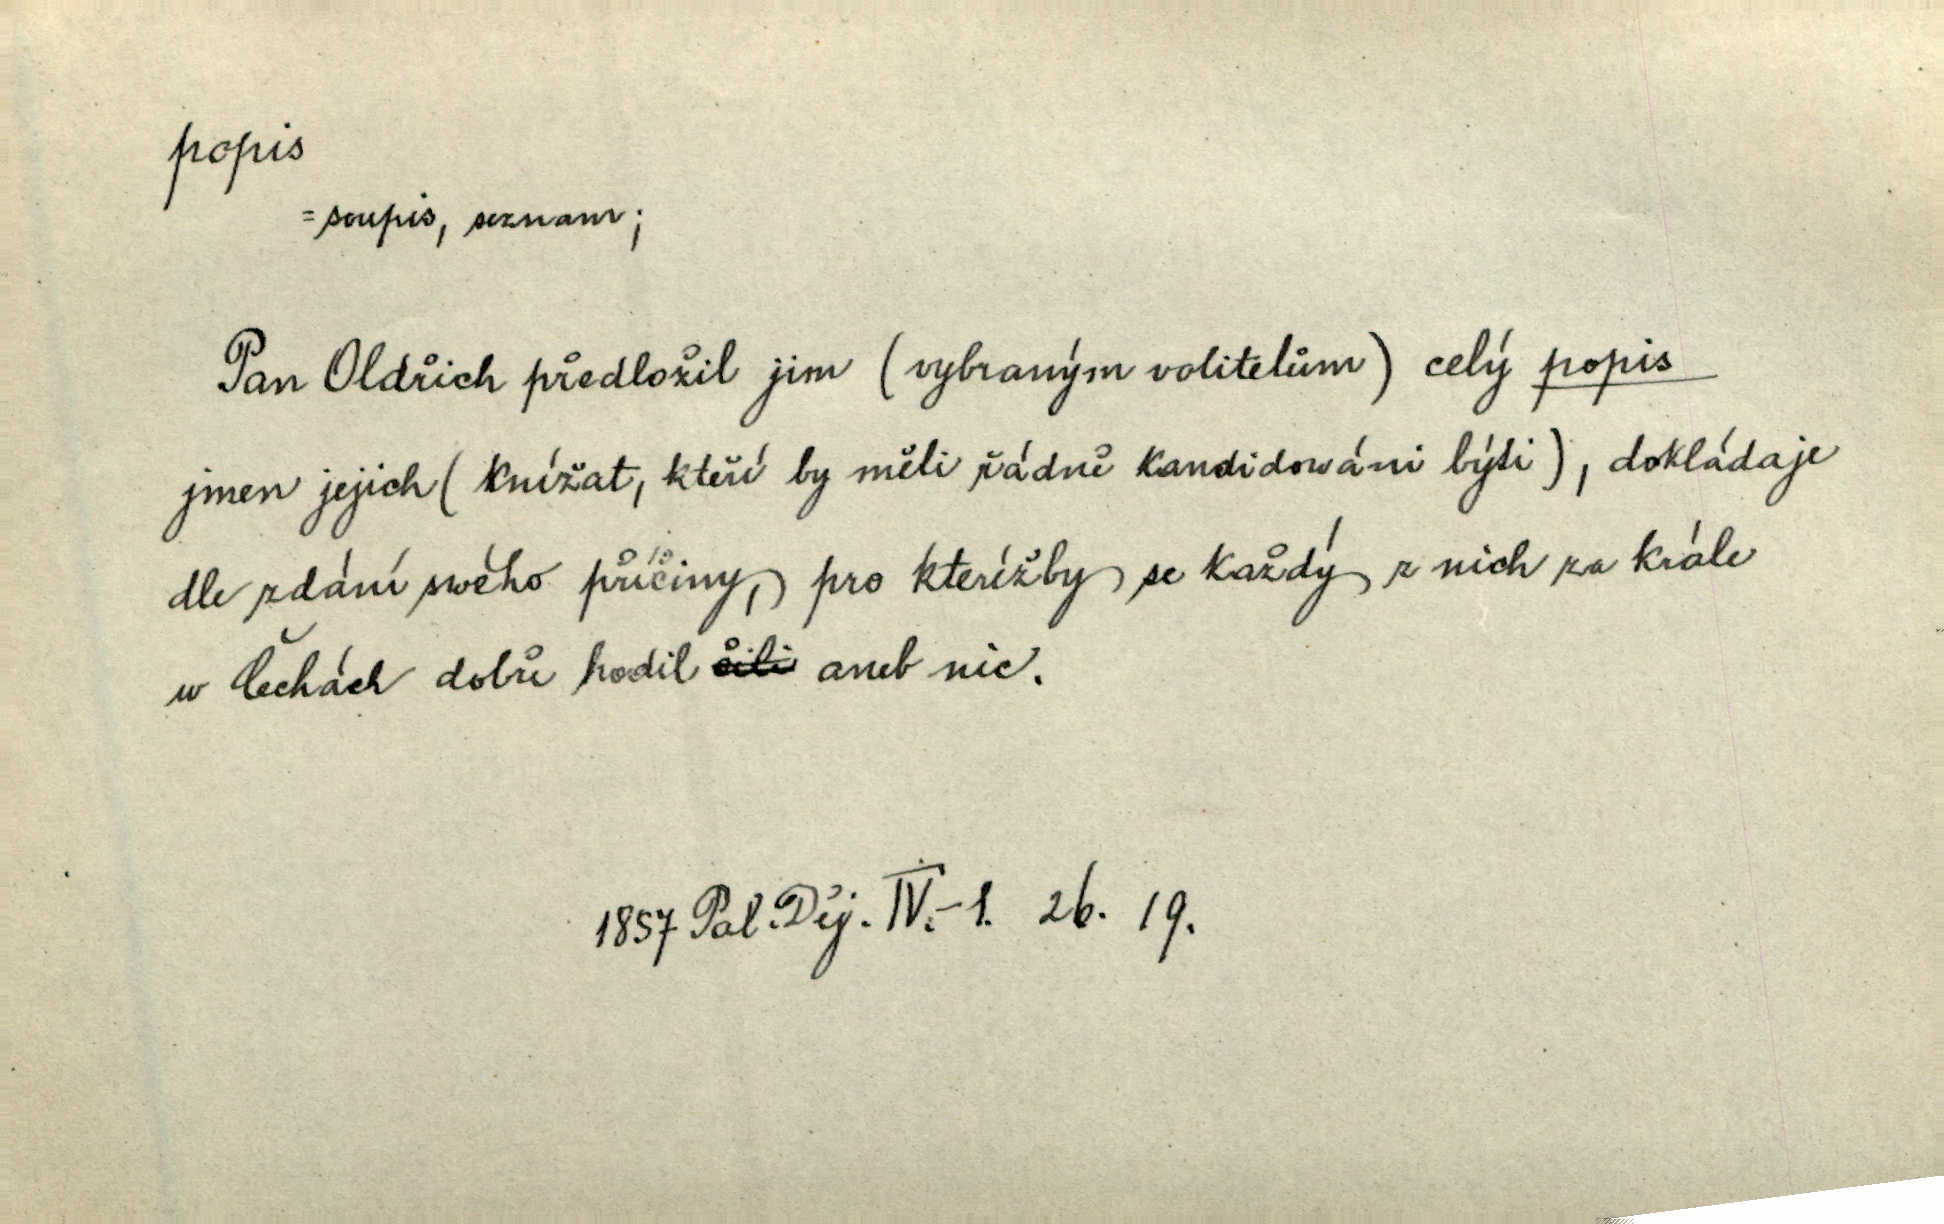 popis
= soupis, seznam;
Pan Oldřich předložil jim (vybraným volitelům) celý popis
jmen jejich (knížat, kteří by měli řádně kandidowáni býti), dokládaje
dle zdání swého příčiny, pro kterížby se každý z nich za krále
w Čechách dobře hodil čili aneb nic.
1857 Pal. Děj. IV.-1. 26. 19.